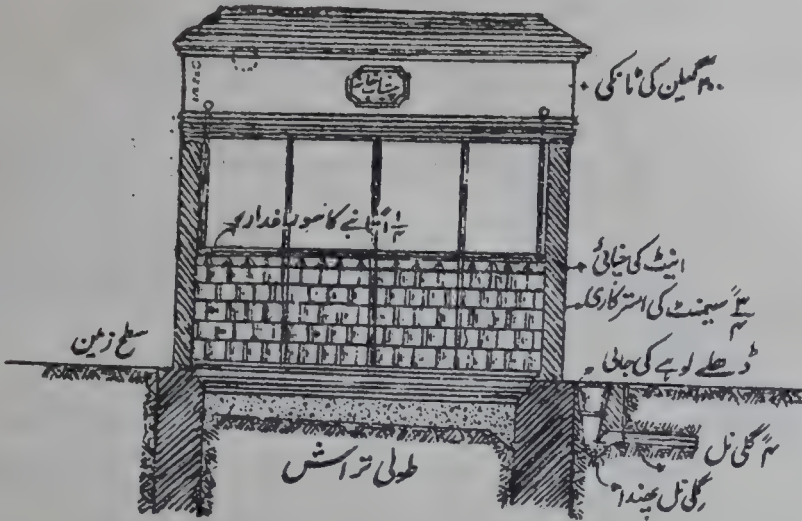 پیشاب خانہ
۴۰ گیلن کی ٹانکی
۱/۲ تانبے کا سوراخدار
اینٹ کی چنائی
۳/۴ سیمنٹ کی استرکاری
سطح زمین
ڈھلے لوہے کی جالی
۴ گلی نل
طولی تراش
گلی نل پھندا